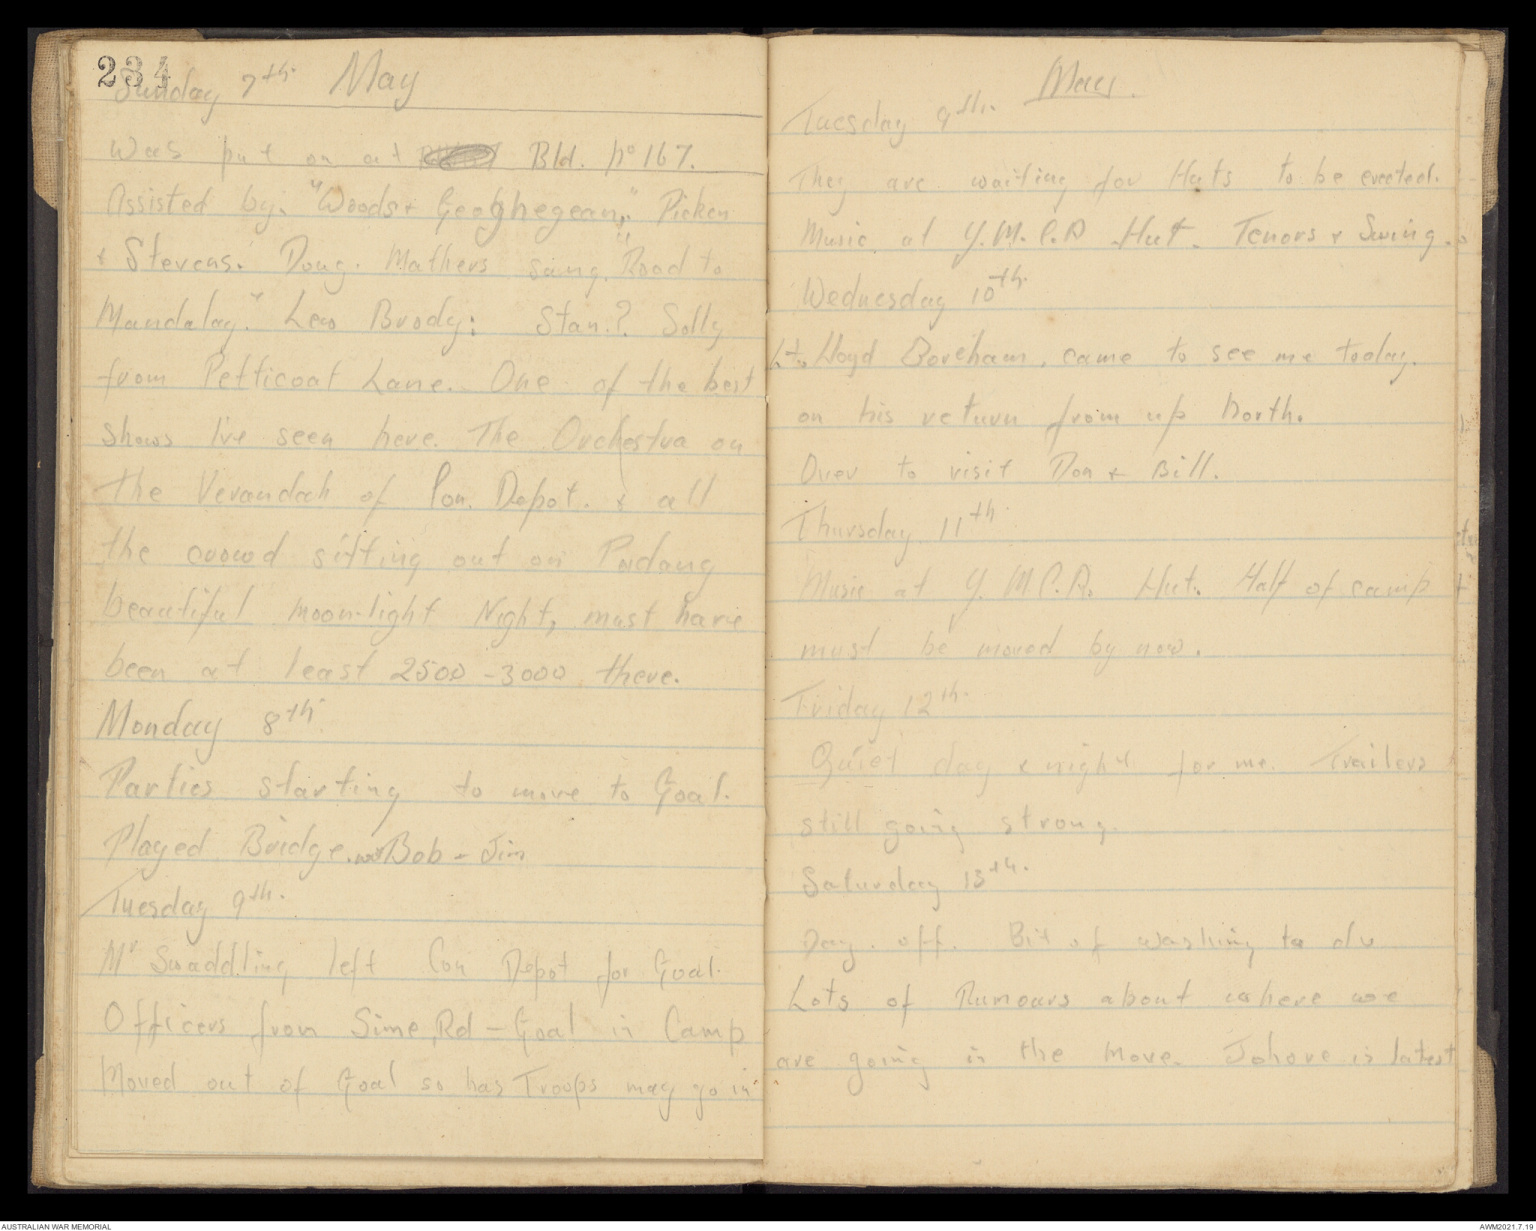 234
Sunday 7th. May
Was put on at Bld. No 167.
Assisted by. "Woods & Geoghegean," Picken
& Stevens. Doug. Mathers sang. "Road to
Mandalay." Leo Brody: Stan.? Solly
from Petticoat Lane. One of the best
shows I've seen here. The Orchestra on
the Verandah of Con. Depot. & all
the crowd sitting out on Padang
beautiful moon-light Night, must have
been at least 2500 - 3000 there.
Monday 8th.
Parties starting to move to Goal.
Played Bridge. Bob - Jim
Tuesday 9th.
Mr Swaddling left Con Depot for Goal.
Officers from Sime, Rd - Goal in Camp
Moved out of Goal so has Troops may go in
May.
Tuesday 9th.
They are waiting for Huts to be erected.
Music at Y.M.C.A Hut. Tenors & Swing.
Wednesday 10th.
Lt. Lloyd Boreham. came to see me today.
on his return from up North.
Over to visit Don & Bill.
Thursday 11th
Music at Y.M.C.A. Hut. Half of camp
must be moved by now.
Friday 12th.
Quiet day & night for me. Trailers
still going strong.
Saturday 13th.
Day. off. Bit of washing to do
Lots of Rumours about where we
are going in the move. Johore is latest
AUSTRALIAN WAR MEMORIAL
AWM2021.7.19